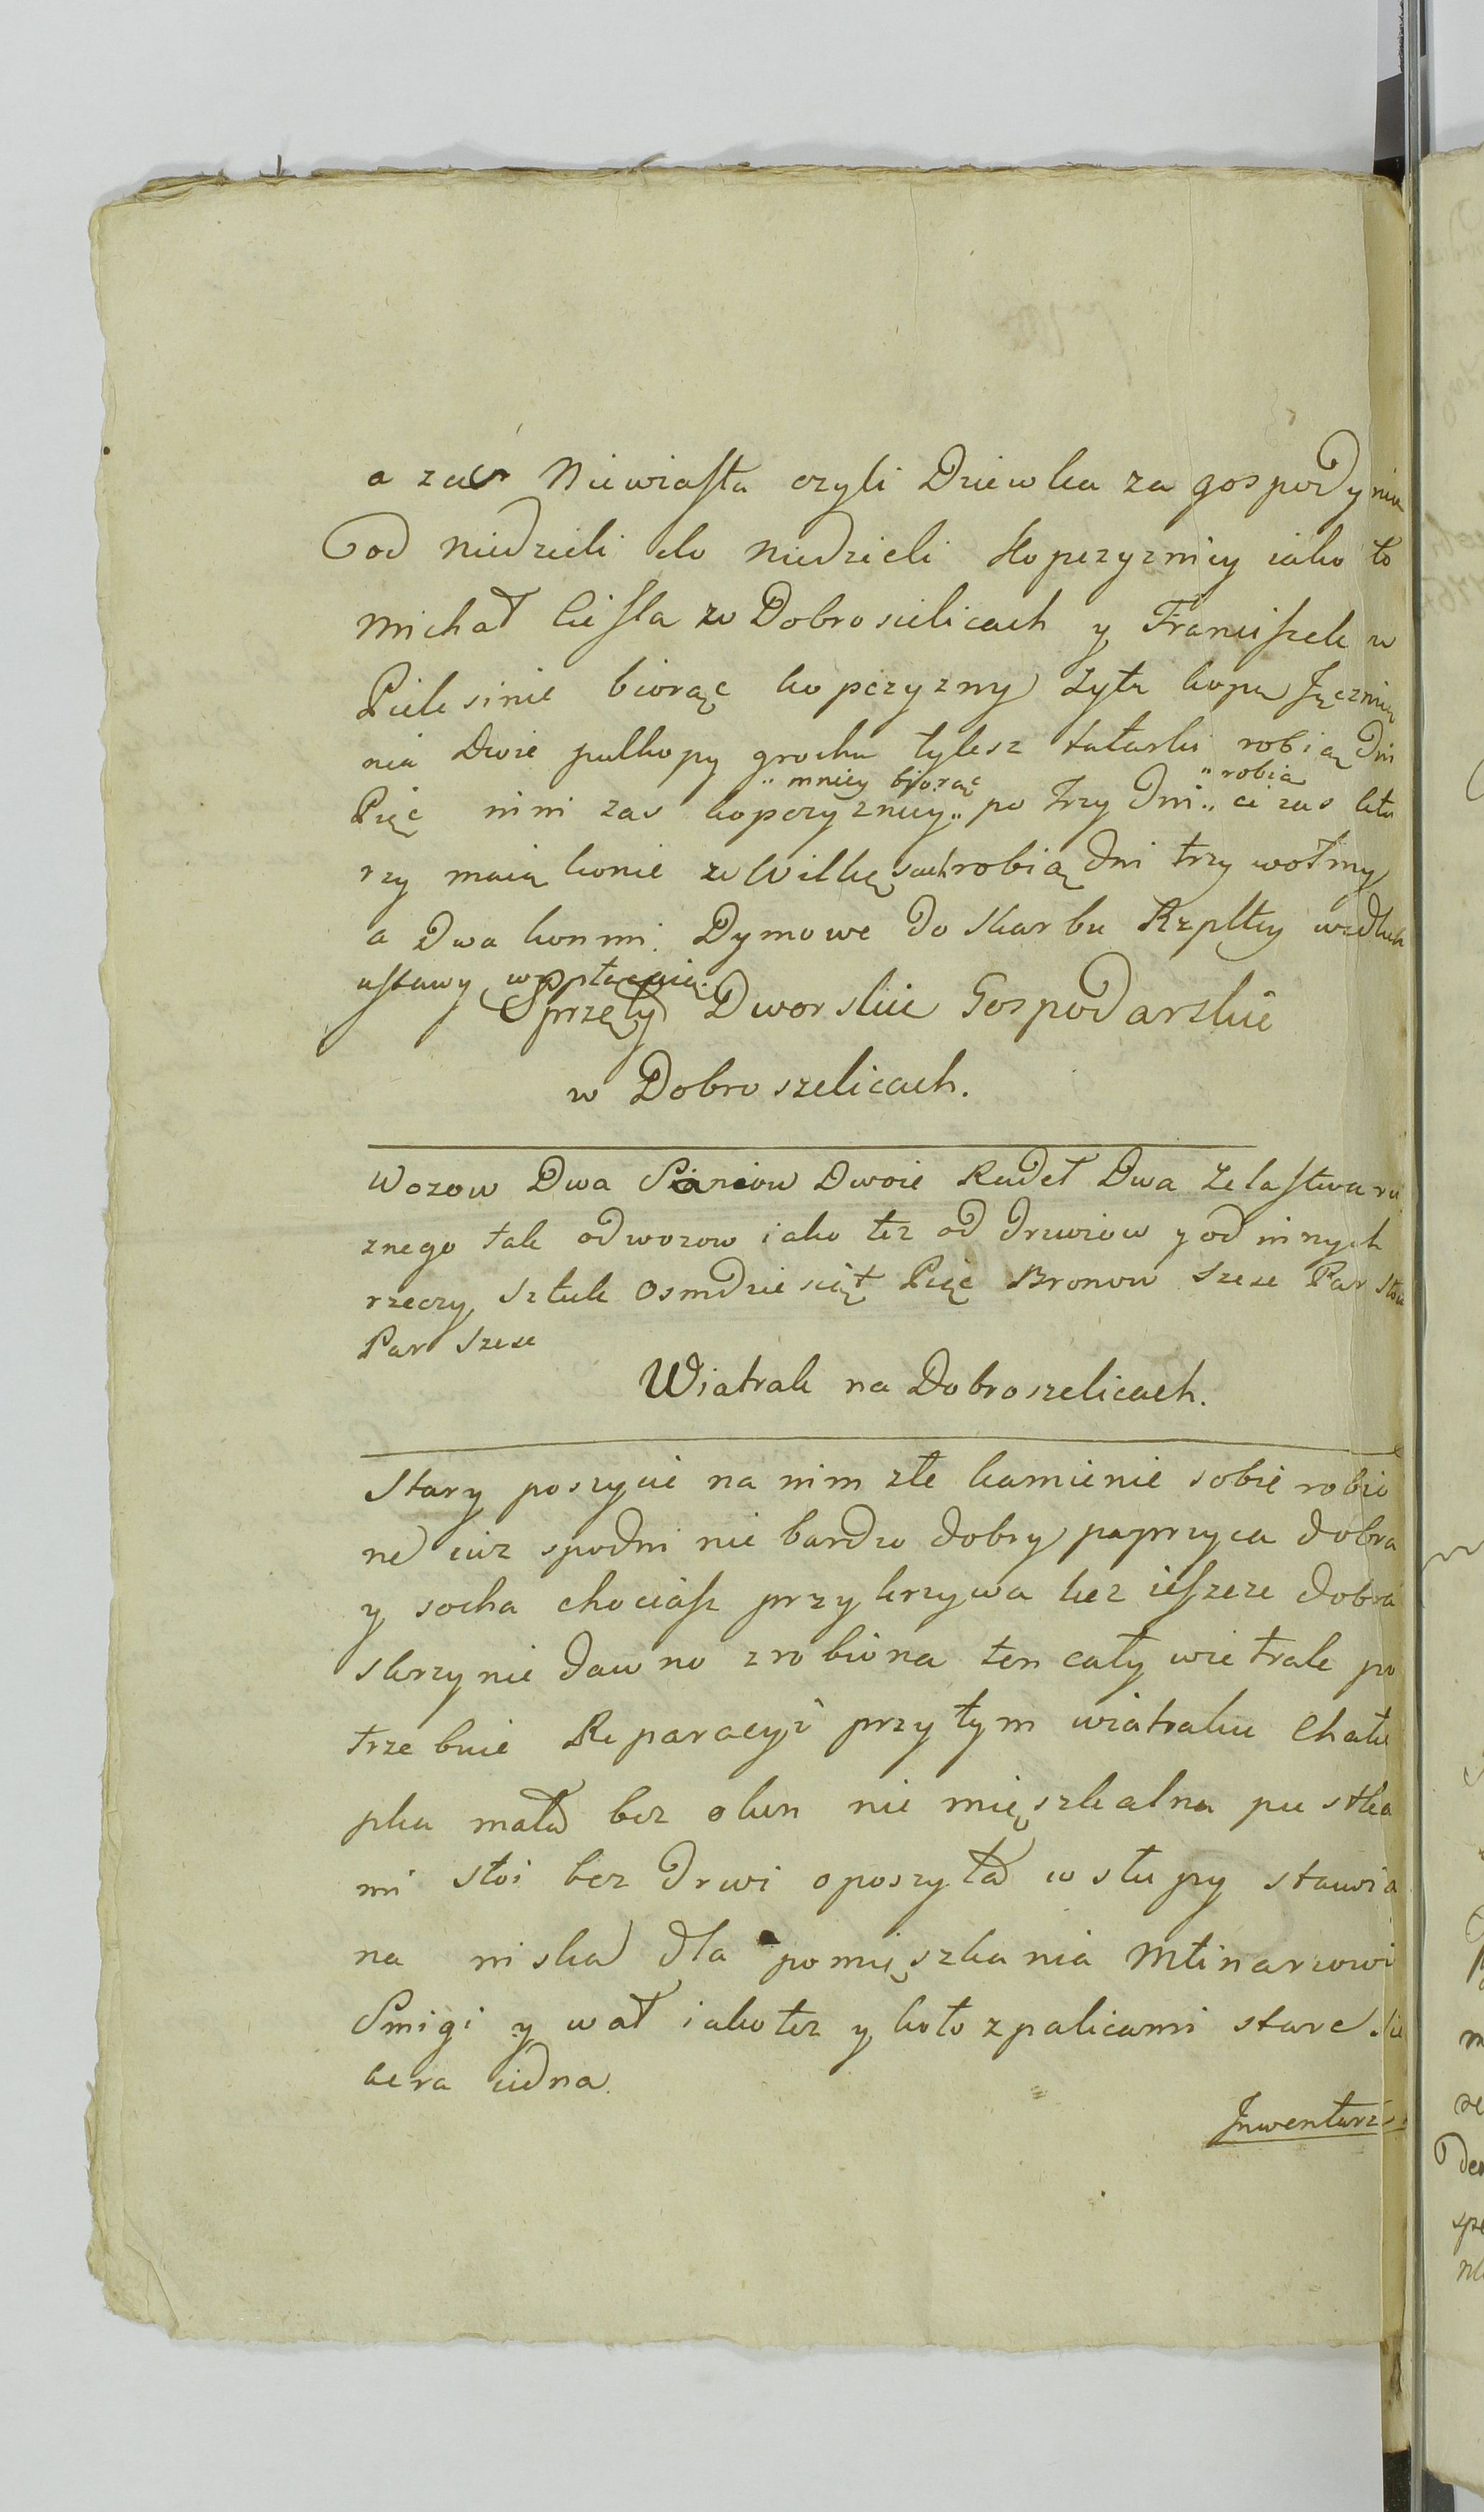 a zas Niewiasta czyli Dziewka za gospodynią
od niedzieli do niedzieli Kopczyznicy iako to
Michał Cieśla w Dobrosielicach y Franciszek w
Pielesinie biorąc kopczyzny Żyta kopę Jęczmie
nia Dwie pułkopy grochu tylesz tatarki robią Dni
„ mniey biorąc „ robią
Pięć inni zas kopczyznicy „ po Trzy Dni „ ci zas któ
rzy maią konie w Wilkęsach robią Dni trzy wołmy
a Dwa konmi. Dymowe do Skarbu Rzpltey wedluk
ustawy wypłacaią.
Sprzęty Dworskie Gospodarskie
w Dobroszelicach.
Wozow Dwa Saniow Dwoie Radeł Dwa Zelastwa ru
znego tak od wozow iako tez od drzwiow y od innych
rzeczy Sztuk Osmdziesiąt Pięć Bronow Szesc Par
Par Szesc
Wiatrak na Dobroszelicach.
Stary poszycie na nim złe kamienie sobie robio
ne iuz spodni nie bardzo dobry paprzyca dobra
y socha chociasz przykrzywa lecz ieszcze dobra
skrzynie dawno zrobiona ten cały wietrak po
trzebuie Reparacyi przy tym wiatraku Chału
pka mała bez okun nie mięszkalna pustka
mi stoi bez Drzwi oposzyta w słupy stawia
na niska dla pomięszkania Młinarzowi
Smigi y wał iako tez y koło z palicami stare. Sie
kiera iedna.
Inwentarz